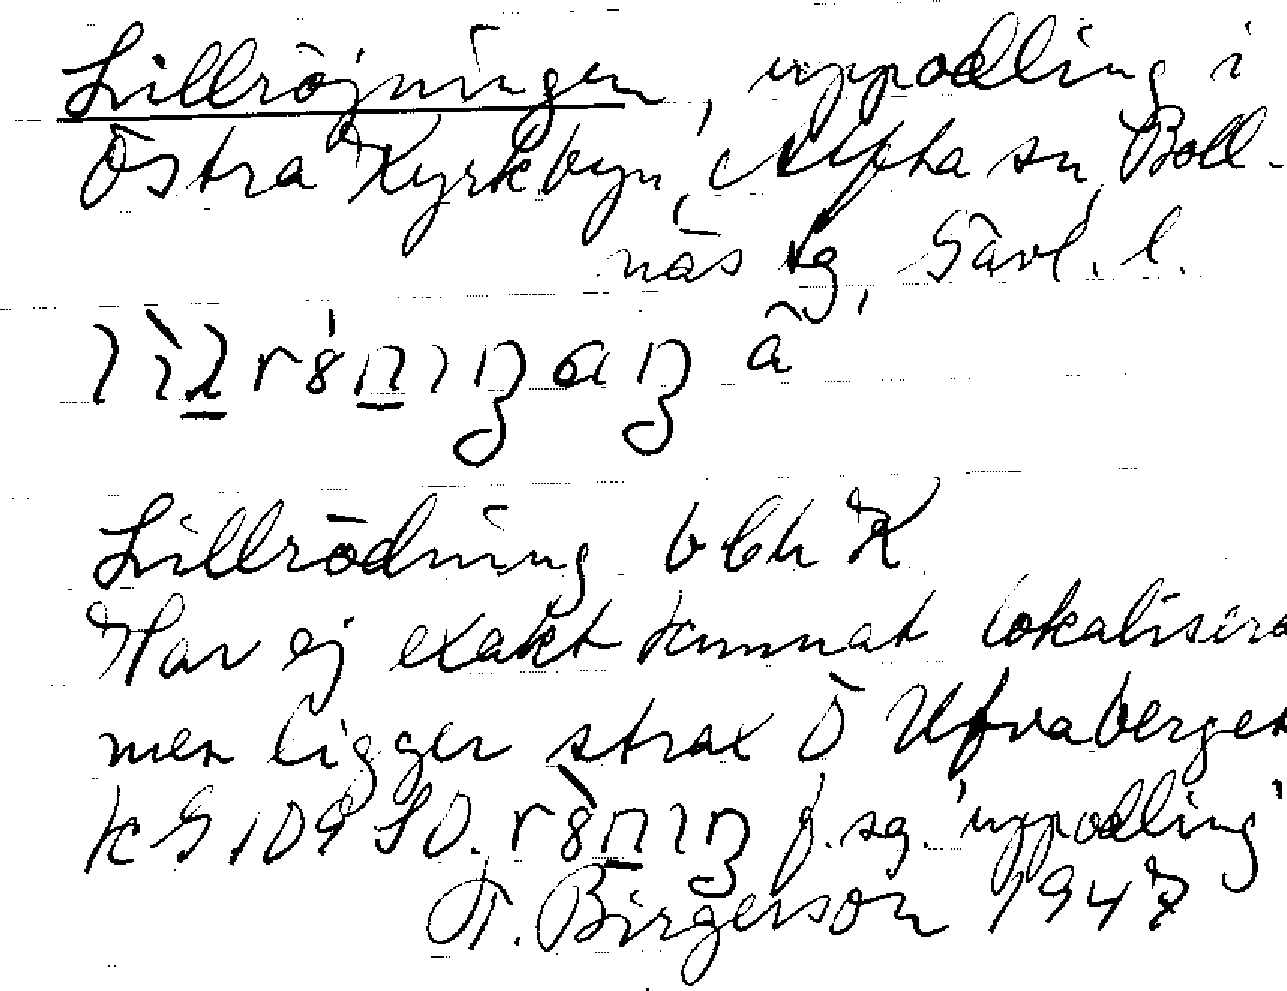 Lillröjningen, uppodling i
Östra Kyrkbyn, Alfta sn, Boll-
näs tg, Gävl. l.
å
Lillrödning bbh K
Har ej exakt kunnat lokalisera
men ligger strax Ö Ufvabergen
k G 109 SO. f. sg. 'uppodling'
F. Birgerson 1947